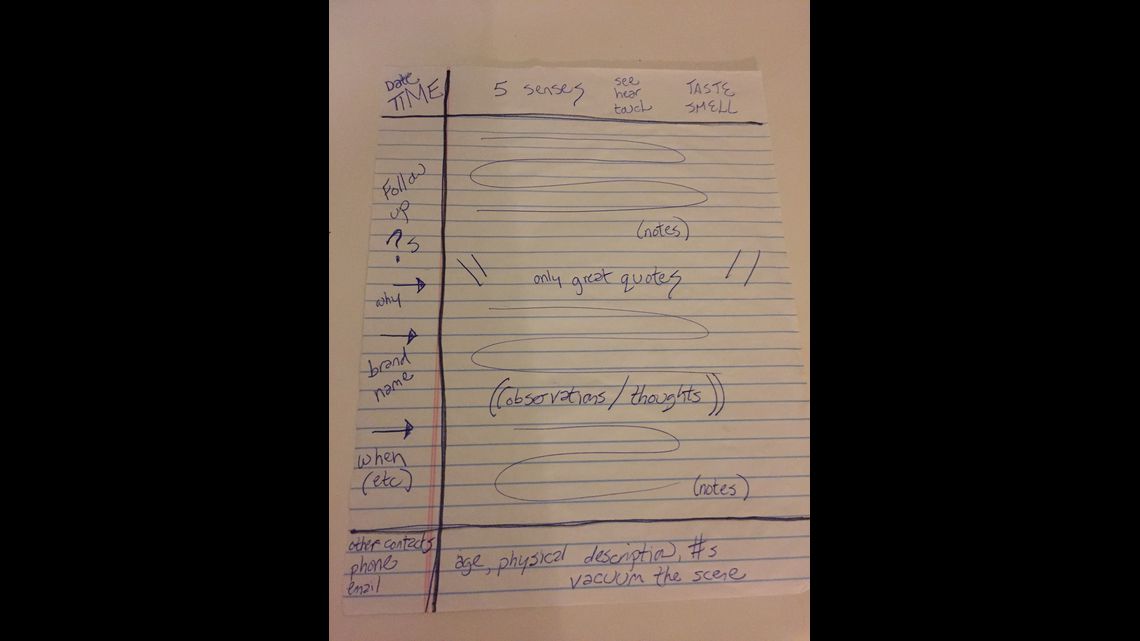 Date
TIME
5 senses
see
hear
touch
TASTE
SMELL
Follow
up
?s
why
brand
name
when
(etc)
(notes)
\\ only great quotes //
((observations/thoughts))
(notes)
other contacts
phone
email
age, physical description, #s
vacuum the scene